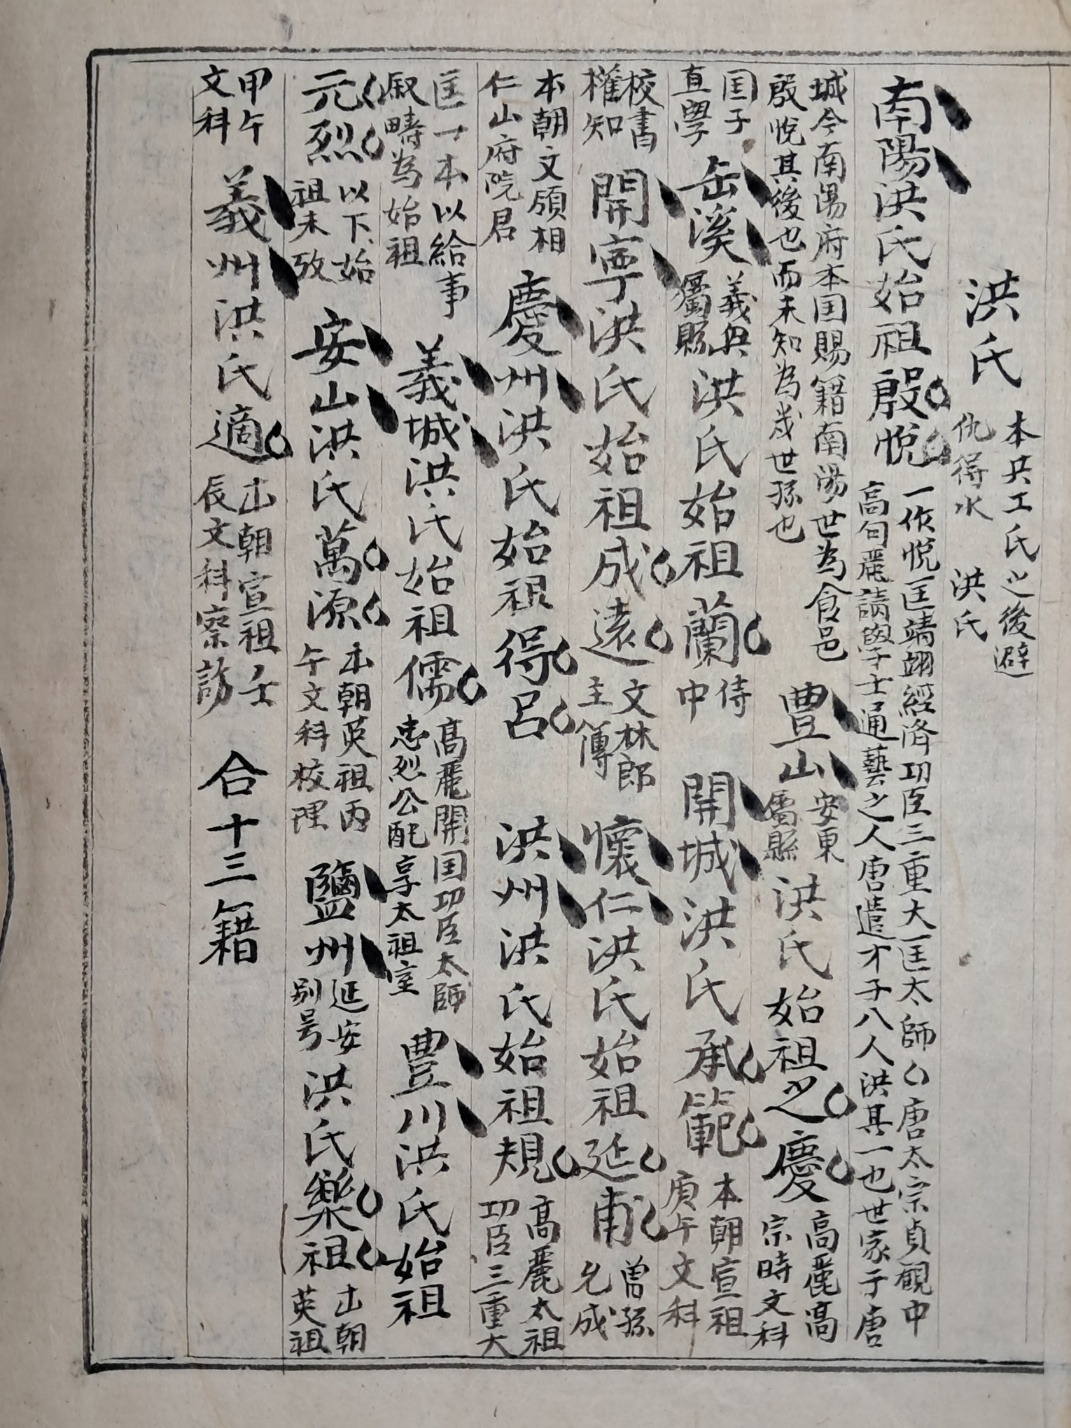 洪氏 本共工氏之後避仇得水 洪氏
南陽洪氏始祖殷悅 一作悅匡靖翊經濟功臣三重大匡太師○唐太宗貞觀中高句麗請學士通藝之人唐遣才子八人洪其一也世家于唐
城今南陽府本国賜籍南陽世為食邑殷悅其後也而未知為幾世孫也 豊山 安東屬縣 洪氏始祖之慶 高麗高宗時文科
国子直學 缶溪 義興屬縣 洪氏始祖蘭 侍中 開城洪氏承範 本朝宣祖庚午文科
校書權知 開寧洪氏始祖成遠 文林郎主簿 懷仁洪氏始祖延甫 曾孫允成
本朝文領相仁山府院君 慶州洪氏始祖得呂 洪州洪氏始祖規 高麗太祖功臣三重大
匡一本以給事殷疇為始祖 義城洪氏始祖儒 高麗開国功臣太師忠烈公配享太祖室 豊川洪氏始祖
元烈 以下始祖未攷 安山洪氏萬源 本朝英祖丙午文科校理 鹽州 延安別号 洪氏樂祖 本朝英祖
甲午文科 義州洪氏適 本朝宣祖壬辰文科察訪 合十三籍